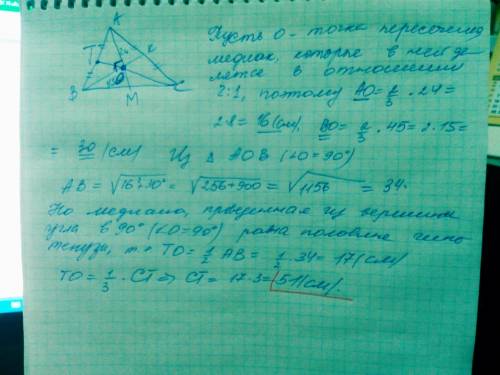 A
T
K
O
B
M
C
Пусть O - точка пересечения
медиан, которые в ней де-
лятся в отношении
2:1, поэтому AO = 2/3 · 24 =
2·8 = 16 (см), BO = 2/3 · 45 = 2·15 =
= 30 (см) Из Δ AOB (∠O = 90°)
AB = √16²+30² = √256+900 = √1156 = 34.
Но медиана, проведенная из вершины
угла в 90° (∠O = 90°) равна половине гипо-
тенузы, TO = 1/2 AB = 1/2 · 34 = 17 (см)
TO = 1/3 · CT => CT = 17·3 = 51 (см).